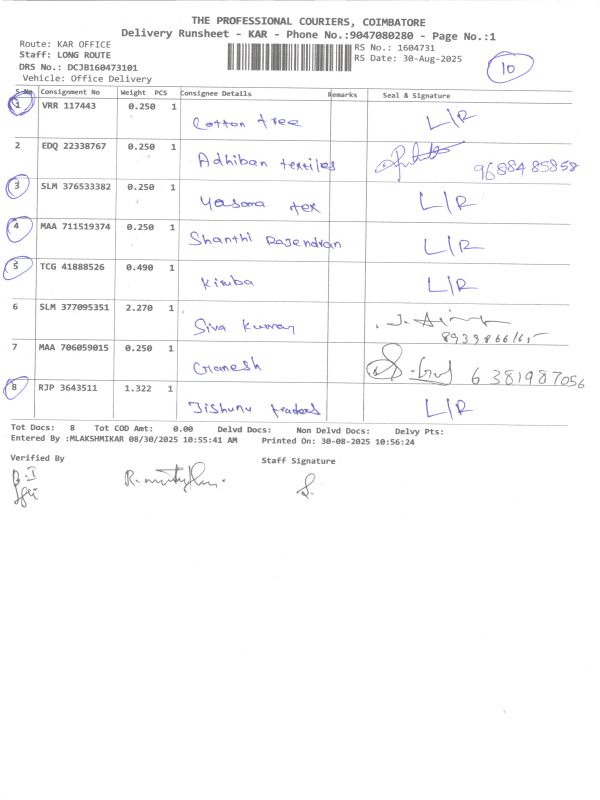 THE PROFESSIONAL COURIERS, COIMBATORE
Delivery Runsheet - KAR - Phone No.:9047080280 - Page No.:1
Route: KAR OFFICE RS No.: 1604731
Staff: LONG ROUTE RS Date: 30-Aug-2025 10
DRS No.: DCJB160473101
Vehicle: Office Delivery
S No Consignment No Weight PCS Consignee Details Remarks Seal & Signature
1 VRR 117443 0.250 1 Cotton tree L/R
2 EDQ 22338767 0.250 1 Adhiban textiles 96884 85858
3 SLM 376533382 0.250 1 Yasona tex L/R
4 MAA 711519374 0.250 1 Shanthi Rajendran L/R
5 TCG 41888526 0.490 1 Kimba L/R
6 SLM 377095351 2.270 1 Siva Kumar
7 MAA 706059015 0.250 1 Ganesh 6381987056
8 RJP 3643511 1.322 1 Jishunu traders L/R
Tot Docs: 8 Tot COD Amt: 0.00 Delvd Docs: Non Delvd Docs: Delvy Pts:
Entered By :MLAKSHMIKAR 08/30/2025 10:55:41 AM Printed On: 30-08-2025 10:56:24
Verified By Staff Signature